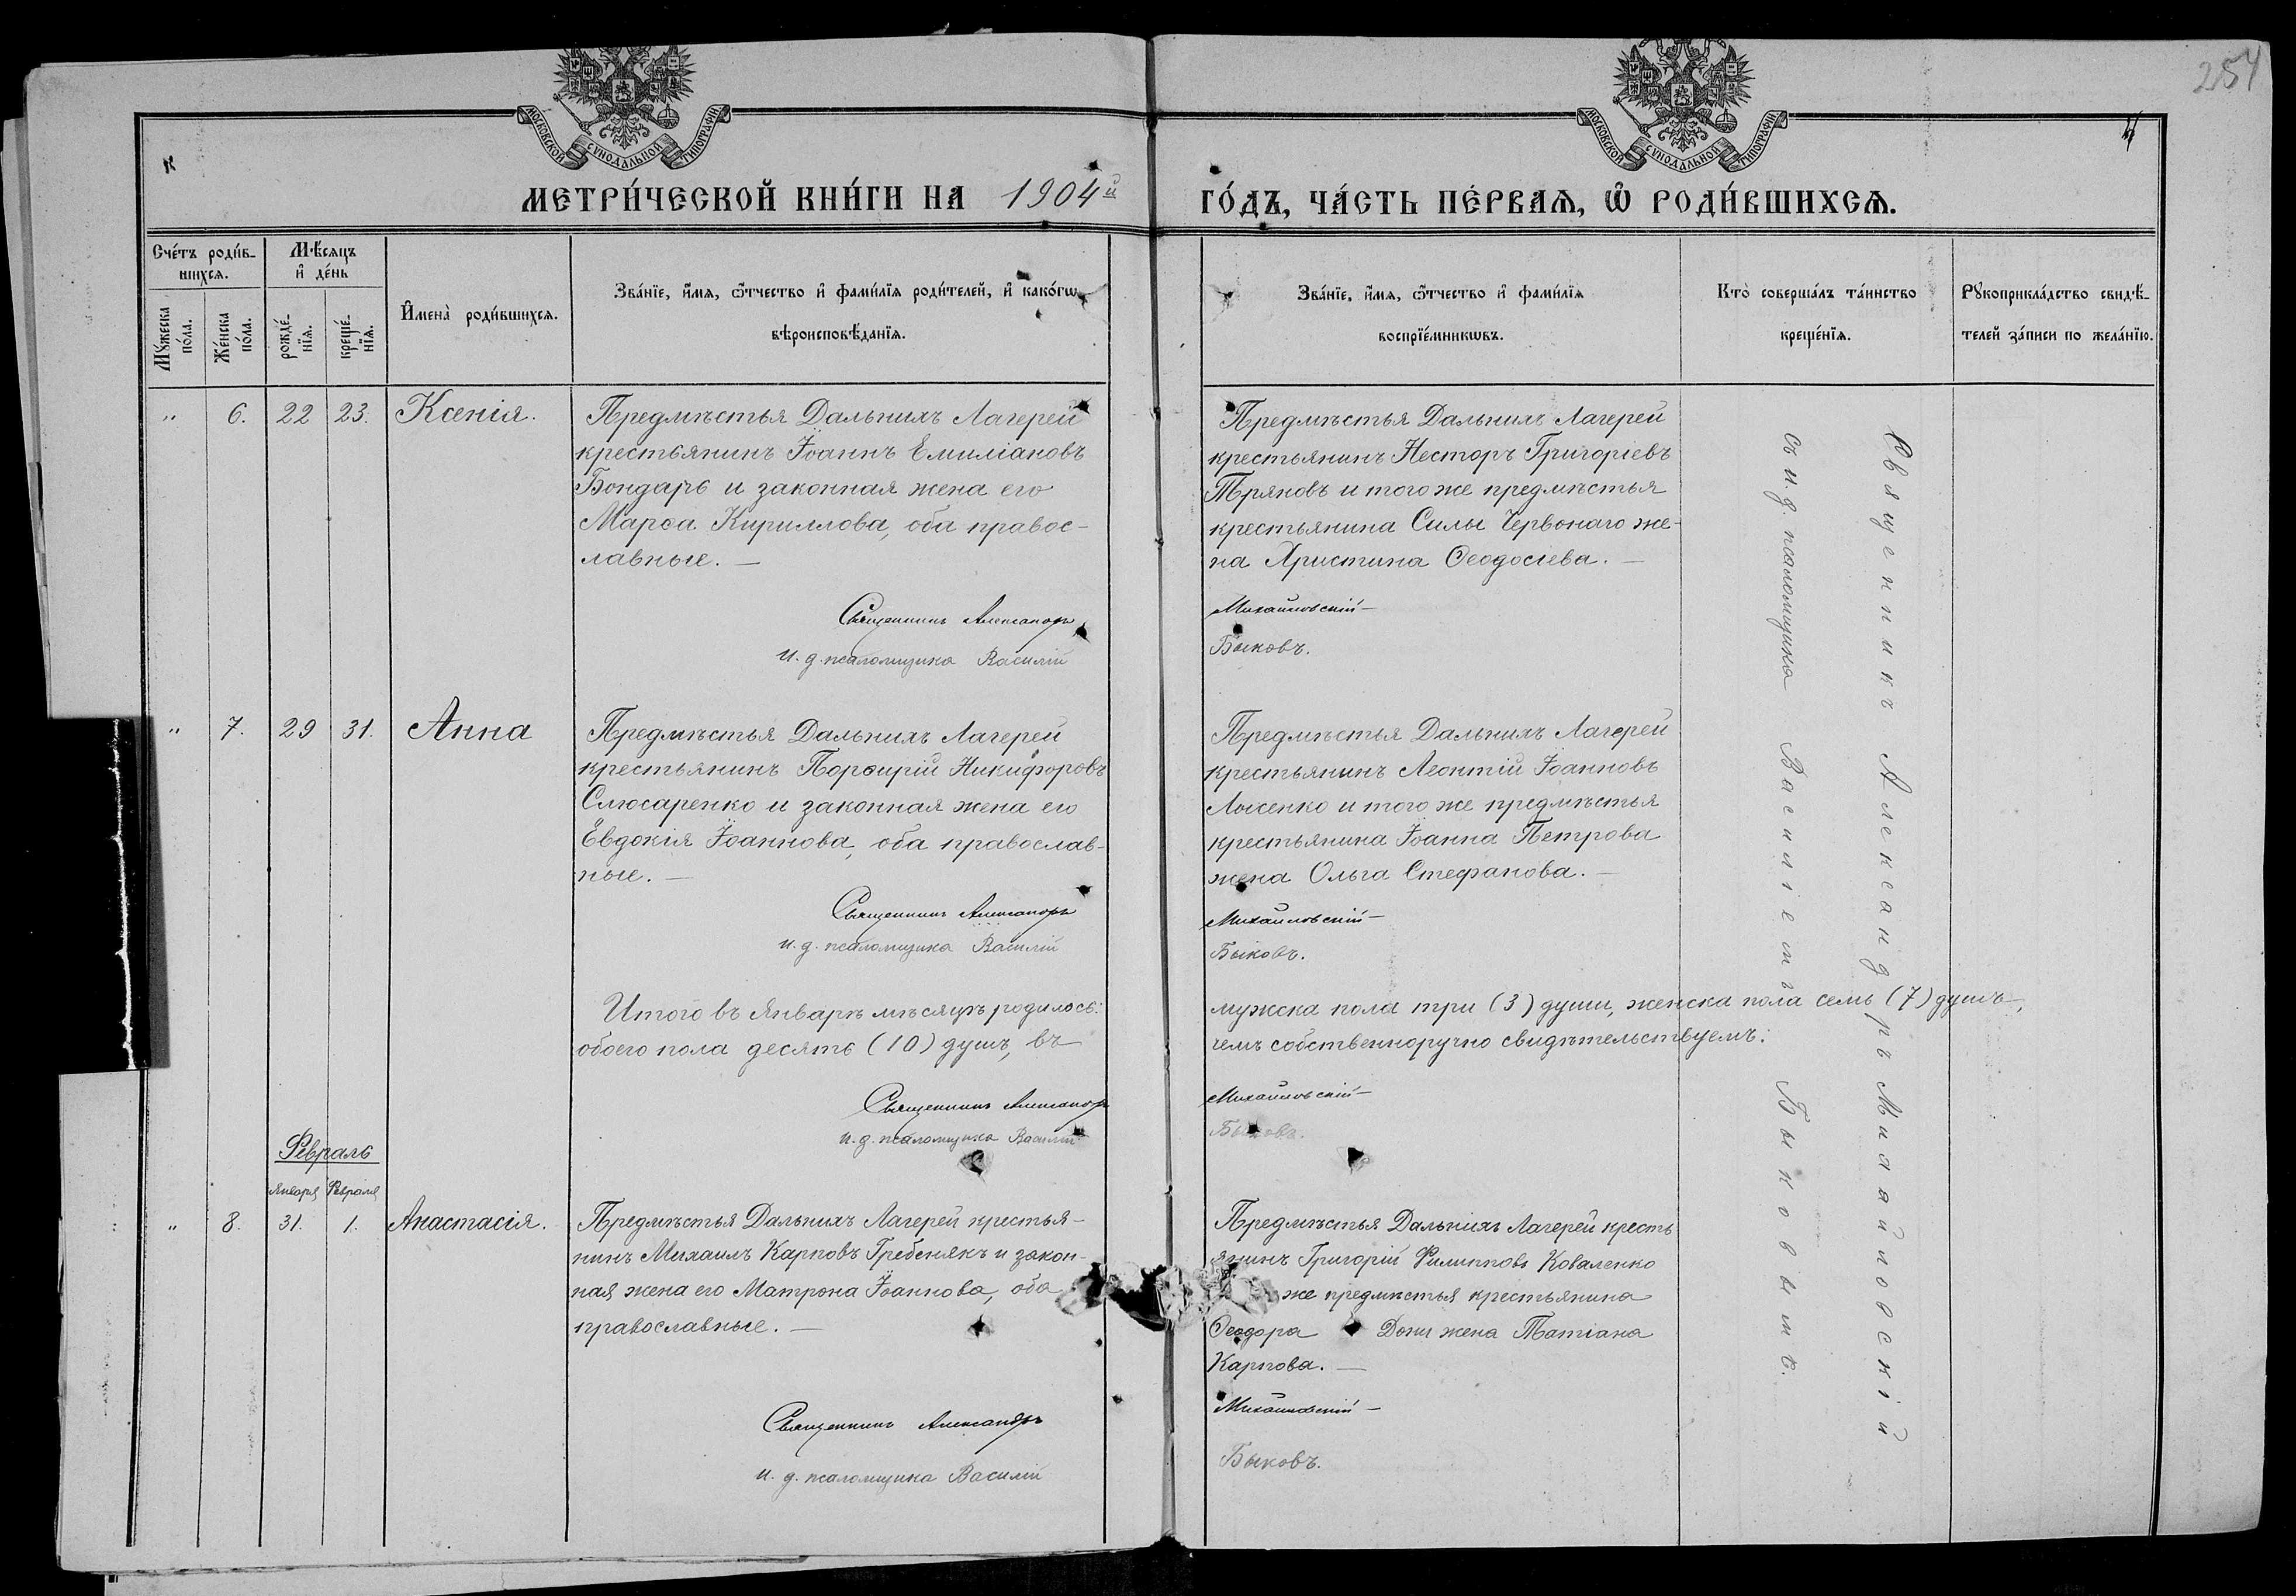 254
МОСКОВСКОЙ СѴНОДАЛЬНОЙ ТИПОГРАФІИ
МОСКОВСКОЙ СѴНОДАЛЬНОЙ ТИПОГРАФІИ
МЕТРИ́ЧЕСКОЙ КНИ́ГИ НА 1904й
ГО́ДЪ, ЧА́СТЬ ПЕ́РВАѦ, Ѽ РОДИ́ВШИХСѦ.
Сче́тъ роди́в-
шихсѧ.
Мꙋ́жеска по́ла.
Же́нска по́ла.
Мѣ́сѧцъ
и҆ де́нь
рожде́-
нїѧ.
креще́-
нїѧ.
И҆мена̀ роди́вшихсѧ.
Зва́нїе, и҆́мѧ, ѻ҆́тчество и҆ фами́лїѧ роди́телей, и҆ како́гѡ
вѣроисповѣ́данїѧ.
Зва́нїе, и҆́мѧ, ѻ҆́тчество и҆ фами́лїѧ
воспрїе́мникѡвъ.
Кто̀ соверша́лъ та́инство
креще́нїѧ.
Рꙋкоприкла́дство свидѣ́-
телей за́писи по жела́нїю.
„ 6. 22 23. Ксенія.
Предмѣстья Дальнихъ Лагерей
крестьянинъ Іоаннъ Емиліановъ
Бондарь и законная жена его
Марѳа Кириллова, оба правос-
лавные. —
Священникъ Александръ
И. д. псаломщика Василій
Предмѣстья Дальнихъ Лагерей
крестьянинъ Несторъ Григоріевъ
Тряновъ и того же предмѣстья
крестьянина Силы Червонаго же-
на Христина Ѳеодосіева. —
Михайловскій —
Быковъ.
„ 7. 29 31. Анна
Предмѣстья Дальнихъ Лагерей
крестьянинъ Порѳирій Никифоровъ
Слюсаренко и законная жена его
Евдокія Іоаннова, оба православ-
ные. —
Священникъ Александръ
и. д. псаломщика Василій
Предмѣстья Дальнихъ Лагерей
крестьянинъ Леонтій Іоанновъ
Лысенко и того же предмѣстья
крестьянина Іоанна Петрова
жена Ольга Стефанова. —
Михайловскій —
Быковъ.
Итого въ Январѣ мѣсяцѣ родилось:
обоего пола десять (10) душъ, въ
мужска пола три (3) души, женска пола семь (7) душъ,
чемъ собственноручно свидѣтельствуемъ:
Священникъ Александръ
и. д. псаломщика Василій
Михайловскій —
Быковъ.
Февраль
Января Февраля
„ 8. 31. 1. Анастасія.
Предмѣстья Дальнихъ Лагерей крестья-
нинъ Михаилъ Карповъ Гребенякъ и закон-
ная жена его Матрона Іоаннова, оба
православные. —
Священникъ Александръ
и. д. псаломщика Василій
Предмѣстья Дальнихъ Лагерей кресть
янинъ Григорій Филипповъ Коваленко
же предмѣстья крестьянина
Ѳеодора Дони жена Татіана
Карпова. —
Михайловскій —
Быковъ.
Священникъ Александръ Михайловскій
съ и. д. псаломщика Василіемъ Быковымъ.